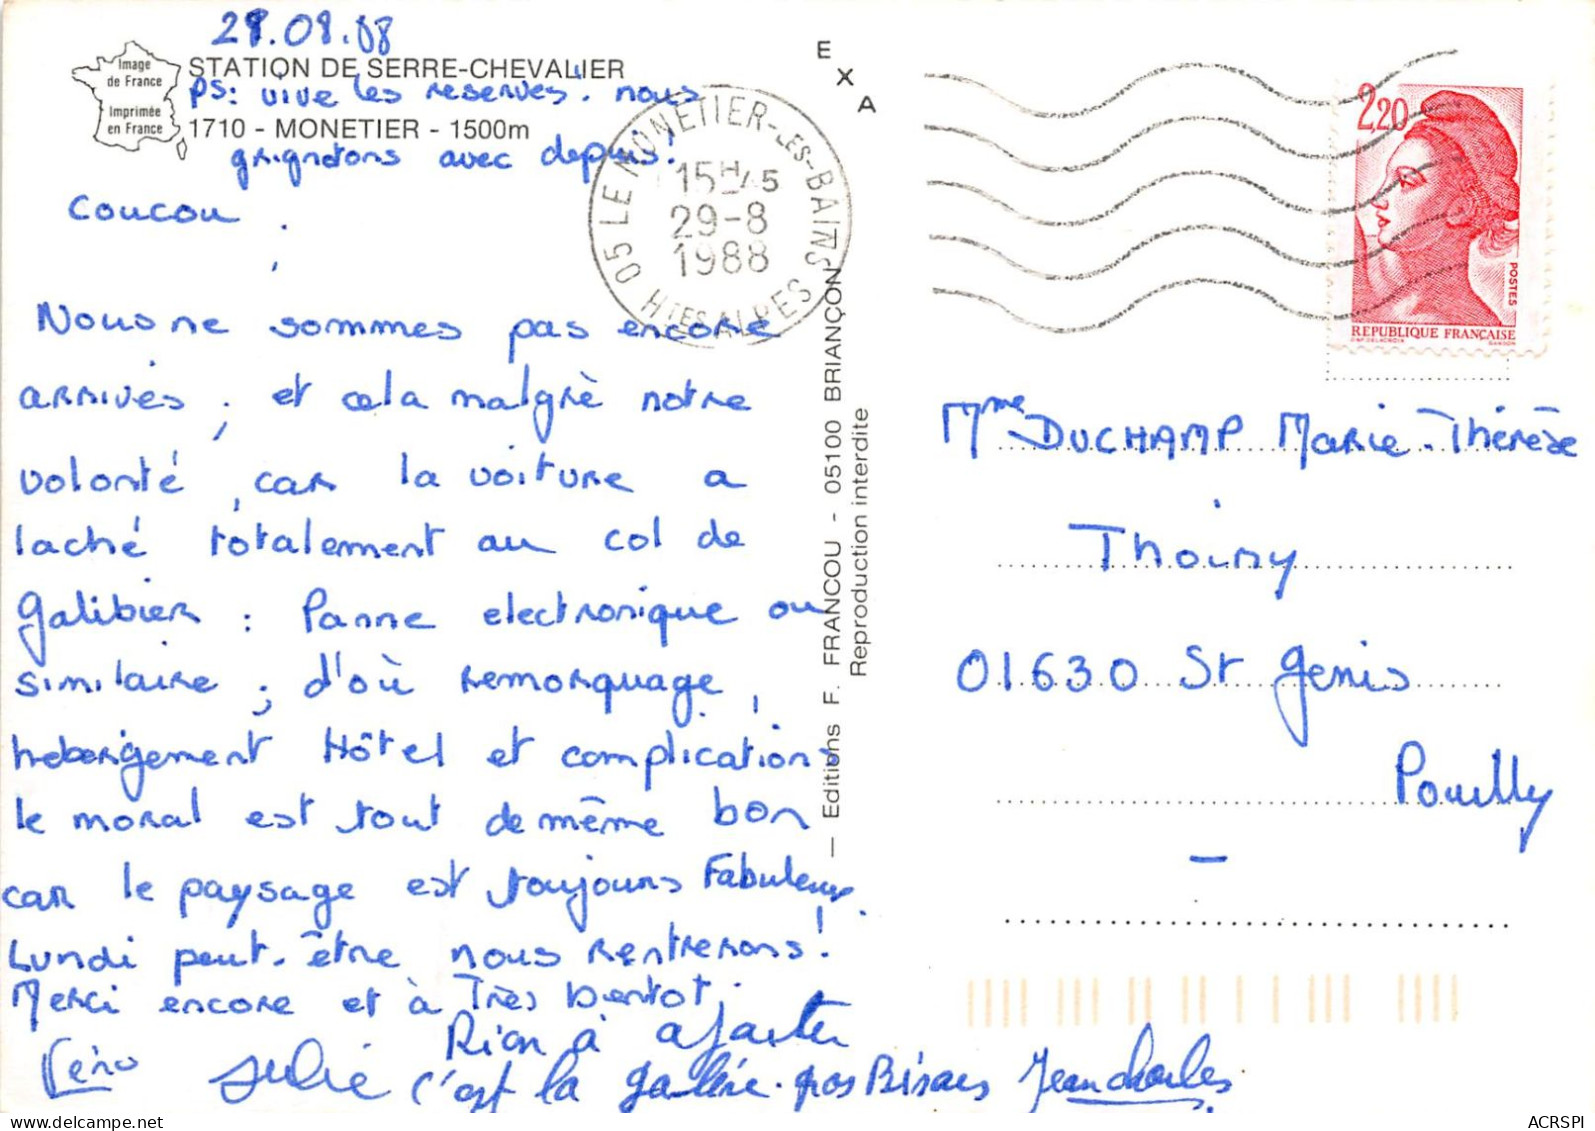 28.08.88
Image
de France
Imprimée
en France
STATION DE SERRE-CHEVALIER
PS: vive les reserves. nous
1710 - MONETIER - 1500m
grignotons avec depuis!
E
X
A
05 LE MONETIER-LES-BAINS
15H45
29-8
1988
HTES ALPES
2,20
POSTES
REPUBLIQUE FRANÇAISE
D'AP. DELACROIX GANDON
Coucou
Nous ne sommes pas encore
arrivés ; et cela malgrè notre
volonté , car la voiture a
laché totalement au col de
Galibier : Panne electronique ou
similaire ; d'où remorquage,
hebergement Hôtel et complications
le moral est tout de même bon
car le paysage est toujours Fabuleux.
Lundi peut-être nous rentrerons!
Merci encore et à Très bientot.
Véro Julie
Rien à ajouter
c'est la galère. gros Bisous Jean charles
— Editions F. FRANCOU - 05100 BRIANÇON
Reproduction interdite
Mme DUCHAMP Marie-Thérèse
Thoiry
01630 St Genis
Pouilly
ACRSPI